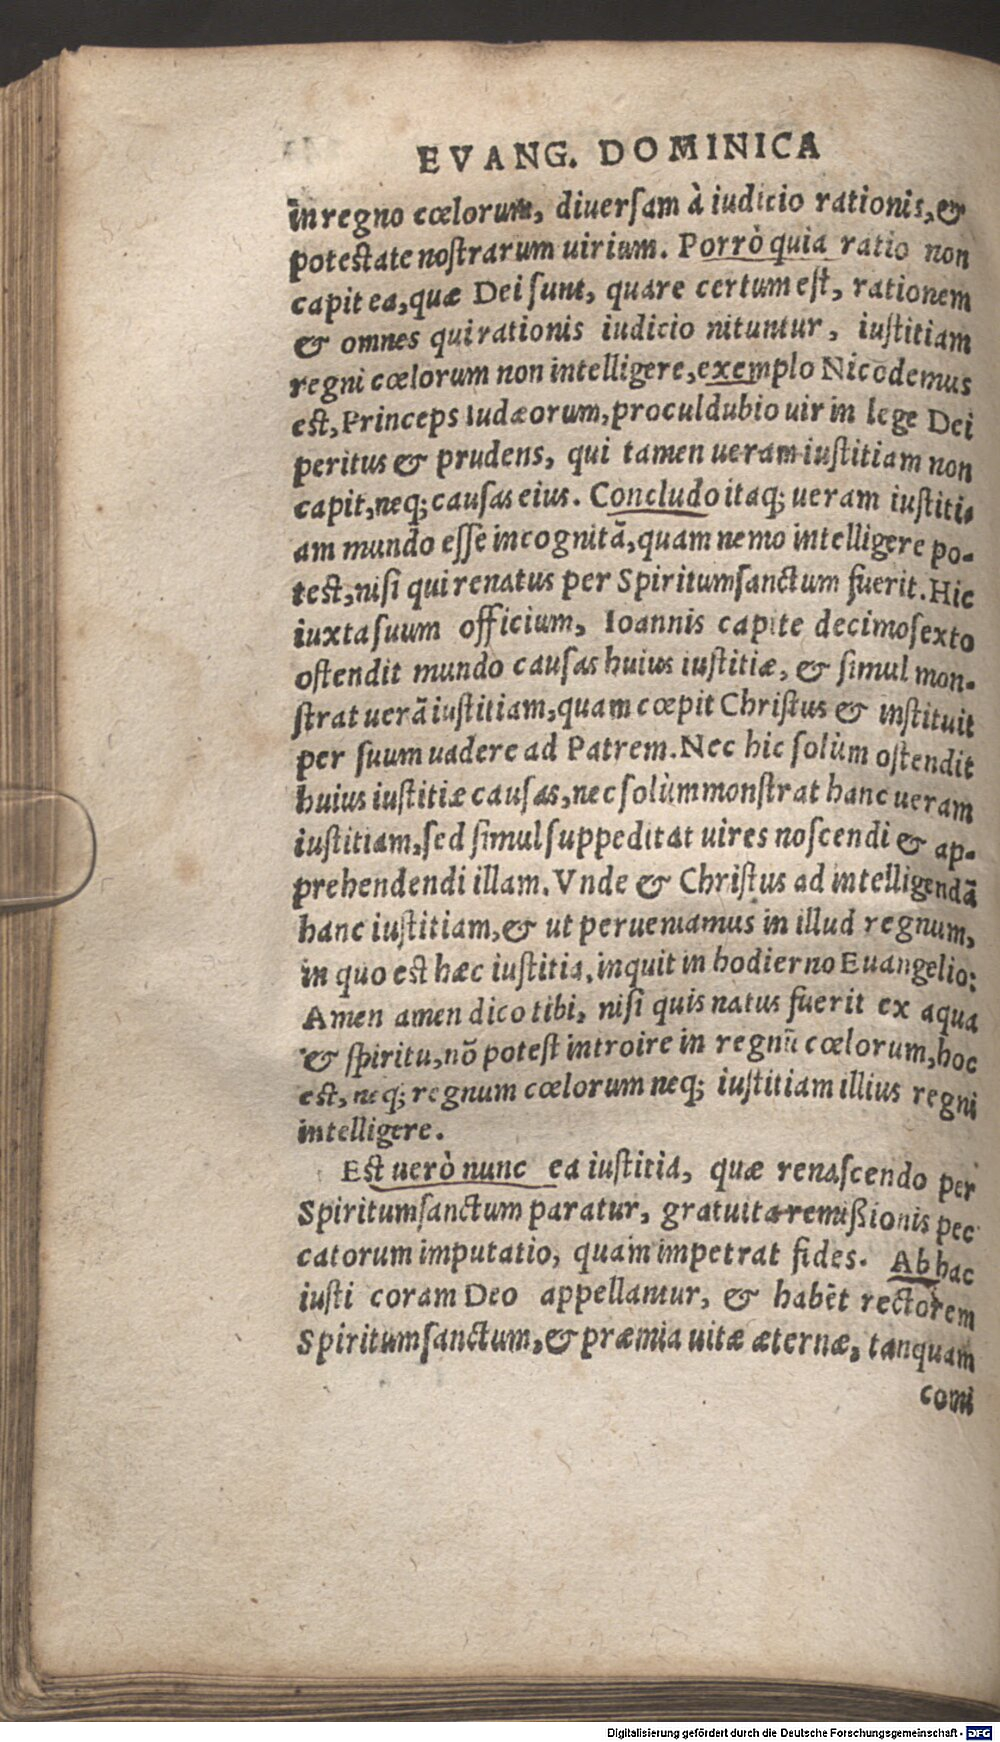 EVANG. DOMINICA
in regno cœlorum, diuersam à iudicio rationis, &
potestate nostrarum uirium. Porrò quia ratio non
capit ea, quæ Dei sunt, quare certum est, rationem
& omnes qui rationis iudicio nituntur, iustitiam
regni cœlorum non intelligere, exemplo Nicodemus
est, Princeps Iudæorum, proculdubio uir in lege Dei
peritus & prudens, qui tamen ueram iustitiam non
capit, neq; causas eius. Concludo itaq; ueram iustiti-
am mundo esse incognitã, quam nemo intelligere po-
test, nisi qui renatus per Spiritumsanctum fuerit. Hic
iuxta suum officium, Ioannis capite decimosexto
ostendit mundo causas huius iustitiæ, & simul mon-
strat uerã iustitiam, quam cœpit Christus & instituit
per suum uadere ad Patrem. Nec hic solùm ostendit
huius iustitiæ causas, nec solùm monstrat hanc ueram
iustitiam, sed simul suppeditat uires noscendi & ap-
prehendendi illam. Vnde & Christus ad intelligendã
hanc iustitiam, & ut perueniamus in illud regnum,
in quo est hæc iustitia, inquit in hodierno Euangelio:
Amen amen dico tibi, nisi quis natus fuerit ex aqua
& spiritu, nõ potest introire in regnũ cœlorum, hoc
est, neq; regnum cœlorum neq; iustitiam illius regni
intelligere.
Est uerò nunc ea iustitia, quæ renascendo per
Spiritumsanctum paratur, gratuita remißionis pec
catorum imputatio, quam impetrat fides. Ab hac
iusti coram Deo appellamur, & habẽt rectorem
Spiritumsanctum, & præmia uitæ æternæ, tanquam
comi
Digitalisierung gefördert durch die Deutsche Forschungsgemeinschaft - DFG